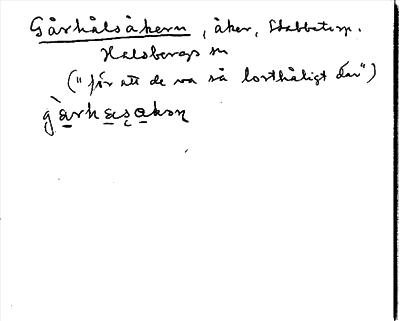 Gårhålsåkern, åker, Stabbetorp.
Halsbergs sn
("för att de va så lorthåligt där")